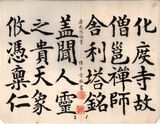 化度寺故
僧邕禪師
舍利塔銘
蓋聞人靈
之貴天象
攸憑稟仁